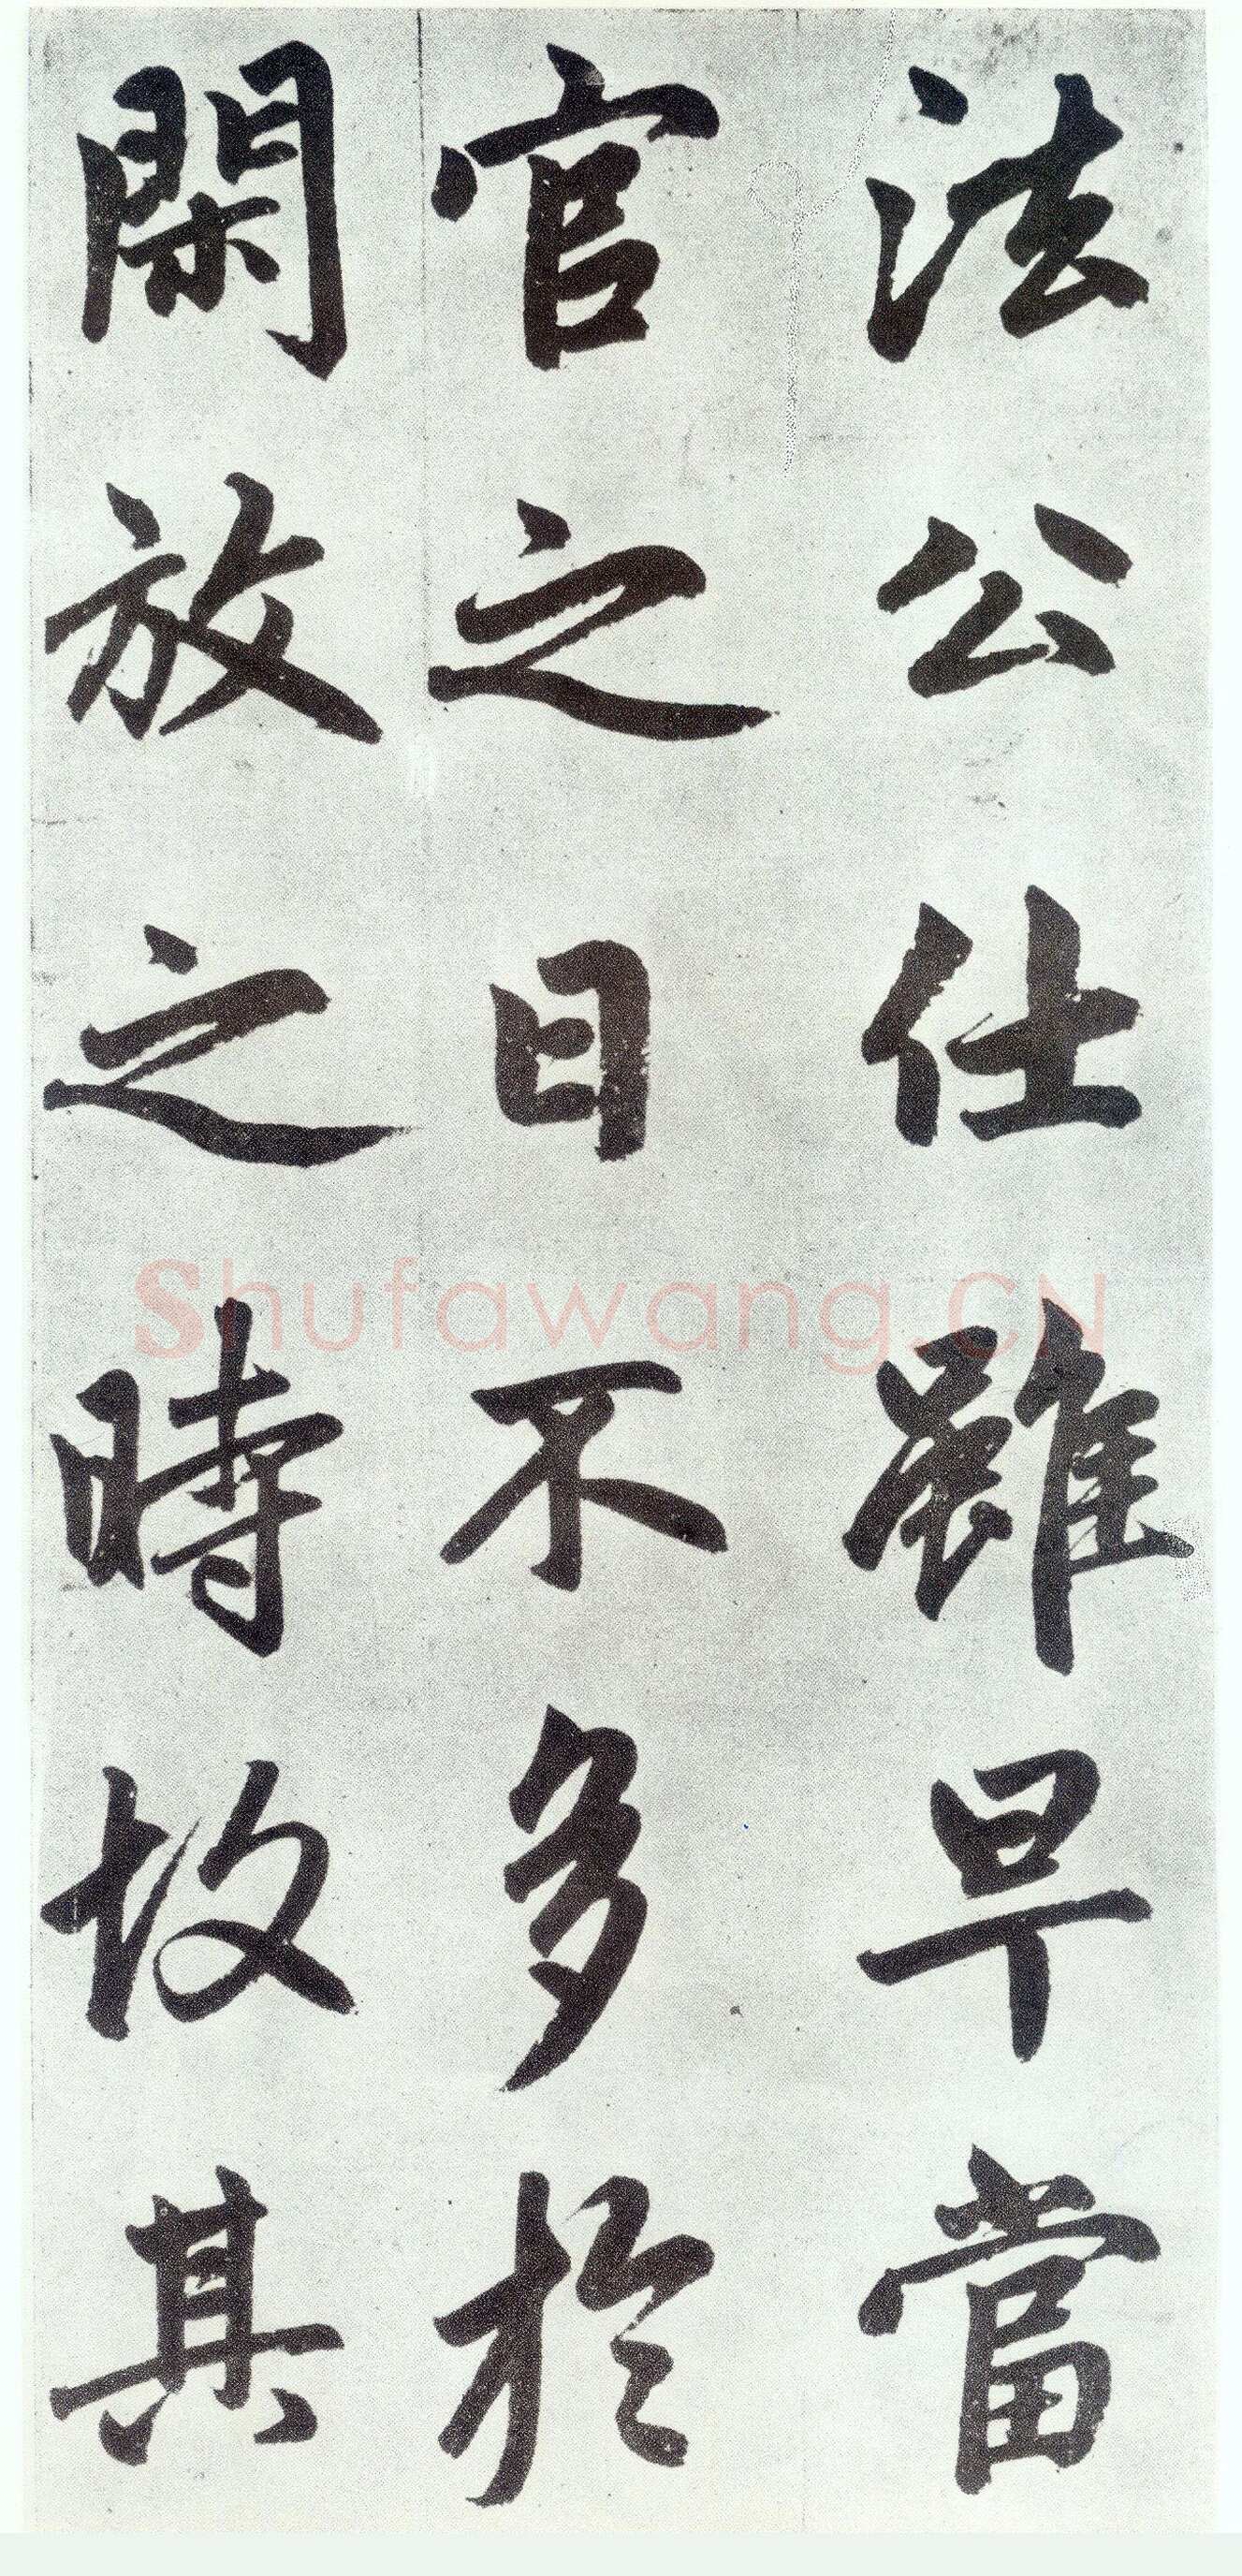 法公仕雖早當
官之日不多於
閑放之時故其
Shufawang.CN